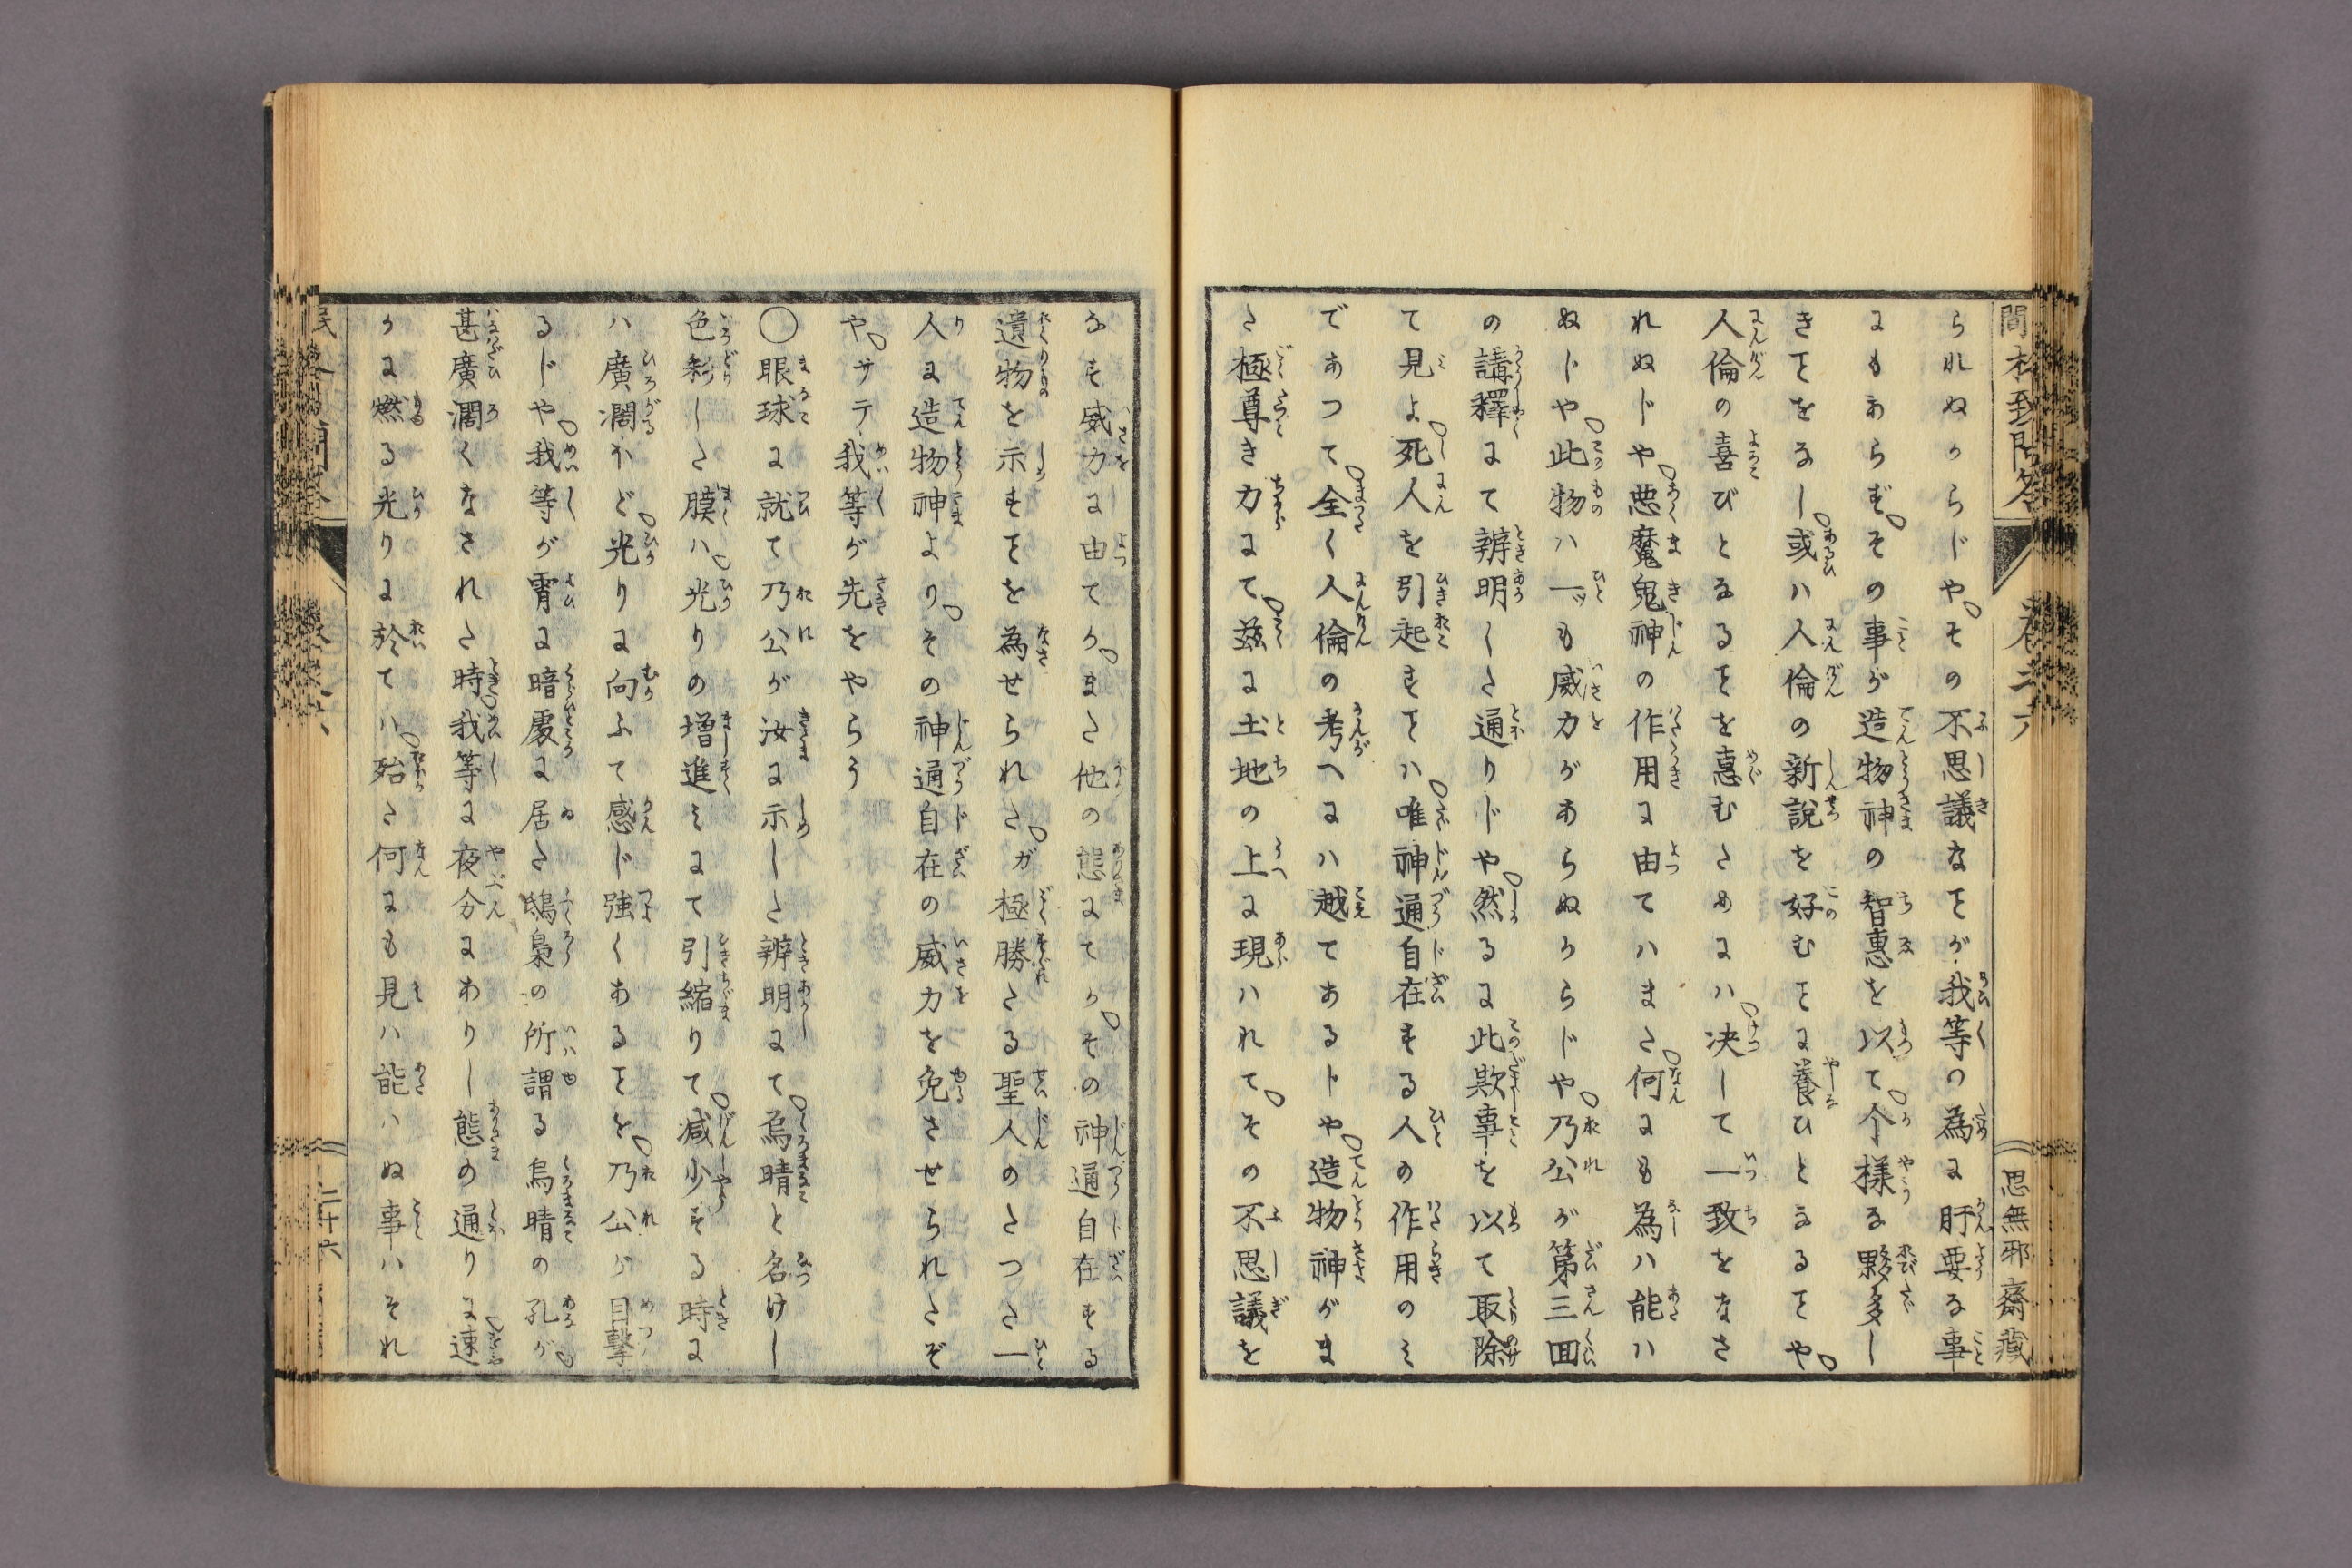 られぬからじや。その不思議なヿが我等の為に肝要な事
にもあらず。その事が造物神の智恵を以て。个様な夥多し
きヿをなし。或ハ人倫の新説を好むヿに養ひとなるヿや。
人倫の喜びとなるヿを恵むためにハ。決して一致をなさ
れぬじや。悪魔鬼神の作用に由てハまた。何にも為ハ能ハ
ぬじや。此物ハ一ッも威力があらぬからじや。乃公が第三回
の講釋にて辨明した通りじや。然るに此欺事を以て取除
て見よ。死人を引起すヿハ。唯神通自在する人の作用のミ
であつて。全く人倫の考へにハ越てあるじや。造物神がま
た極尊き力にて。茲に土地の上に現ハれて。その不思議を
なす威力に由てか。また他の態にてか。その神通自在する
遺物を示すヿを為せられた。ガ極勝たる聖人のたつた一
人に造物神より。その神通自在の威力を免させられたぞ
や。サテ我等が先をやらう
〇眼球に就て乃公が汝に示した辨明にて。烏晴と名けし
色彩した膜ハ。光りの増進ミにて引縮りて。減少する時に
ハ廣濶ホど。光りに向ふて感じ強くあるヿを。乃公が目撃
るじや。我等が宵に暗處に居た鴟梟の所謂る烏晴の孔が。
甚廣濶くなされた時。我等に夜分にありし態の通りに。速
かに燃る光りに於てハ。殆た何にも見ハ能ハぬ事ハそれ
思無邪齋藏
二十六